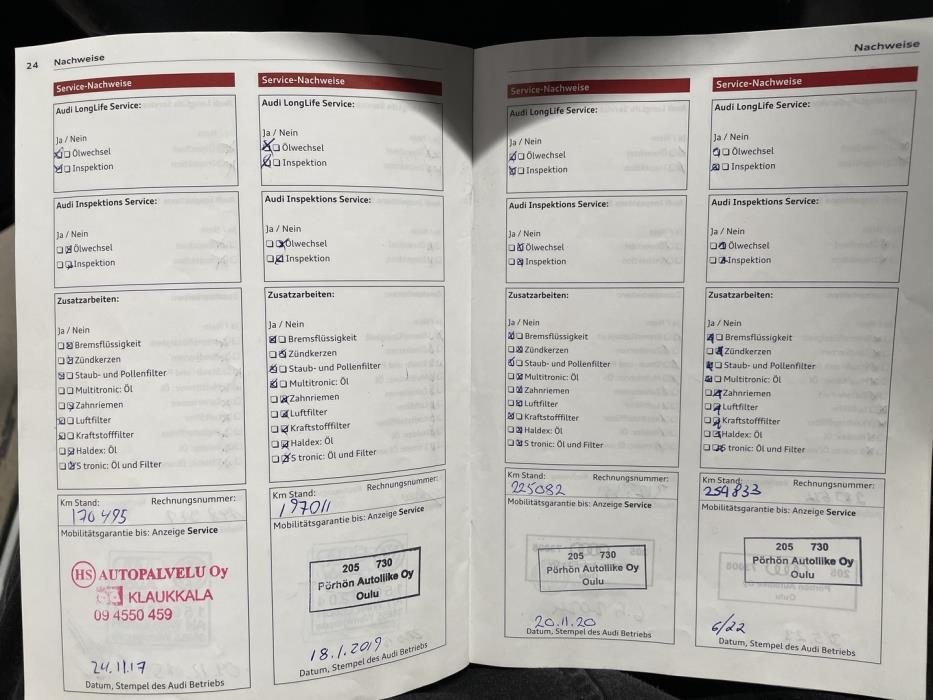 24 Nachweise
Service-Nachweise
Audi LongLife Service:
Ja / Nein
Ölwechsel
Inspektion
Audi Inspektions Service:
Ja / Nein
Ölwechsel
Inspektion
Zusatzarbeiten:
Ja / Nein
Bremsflüssigkeit
Zündkerzen
Staub- und Pollenfilter
Multitronic: Öl
Zahnriemen
Luftfilter
Kraftstofffilter
Haldex: Öl
S tronic: Öl und Filter
Km Stand: Rechnungsnummer:
170 495
Mobilitätsgarantie bis: Anzeige Service
HS AUTOPALVELU Oy
KLAUKKALA
09 4550 459
24.11.17
Datum, Stempel des Audi Betriebs
Service-Nachweise
Audi LongLife Service:
Ja / Nein
Ölwechsel
Inspektion
Audi Inspektions Service:
Ja / Nein
Ölwechsel
Inspektion
Zusatzarbeiten:
Ja / Nein
Bremsflüssigkeit
Zündkerzen
Staub- und Pollenfilter
Multitronic: Öl
Zahnriemen
Luftfilter
Kraftstofffilter
Haldex: Öl
S tronic: Öl und Filter
Km Stand: Rechnungsnummer:
197011
Mobilitätsgarantie bis: Anzeige Service
205 730
Pörhön Autoliike Oy
Oulu
18.1.2019
Datum, Stempel des Audi Betriebs
Nachweise
Service-Nachweise
Audi LongLife Service:
Ja / Nein
Ölwechsel
Inspektion
Audi Inspektions Service:
Ja / Nein
Ölwechsel
Inspektion
Zusatzarbeiten:
Ja / Nein
Bremsflüssigkeit
Zündkerzen
Staub- und Pollenfilter
Multitronic: Öl
Zahnriemen
Luftfilter
Kraftstofffilter
Haldex: Öl
S tronic: Öl und Filter
Km Stand: Rechnungsnummer:
225082
Mobilitätsgarantie bis: Anzeige Service
205 730
Pörhön Autoliike Oy
Oulu
20.11.20
Datum, Stempel des Audi Betriebs
Service-Nachweise
Audi LongLife Service:
Ja / Nein
Ölwechsel
Inspektion
Audi Inspektions Service:
Ja / Nein
Ölwechsel
Inspektion
Zusatzarbeiten:
Ja / Nein
Bremsflüssigkeit
Zündkerzen
Staub- und Pollenfilter
Multitronic: Öl
Zahnriemen
Luftfilter
Kraftstofffilter
Haldex: Öl
S tronic: Öl und Filter
Km Stand: Rechnungsnummer:
254833
Mobilitätsgarantie bis: Anzeige Service
205 730
Pörhön Autoliike Oy
Oulu
6/22
Datum, Stempel des Audi Betriebs